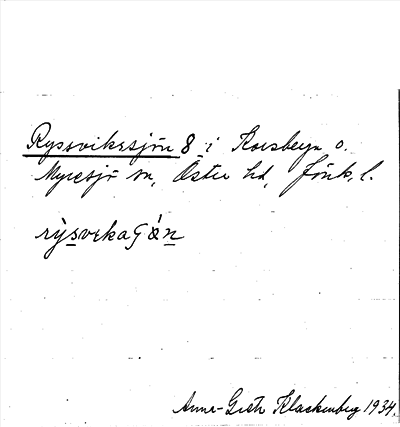 Ryssvikssjön 8 i Korsberga o.
Myresjö sn, Östra hd, Jönk. l.
rỳsvɩkaʃǿn
Anna-Greta Klackenberg 1934.